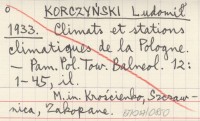 o KORCZYŃSKI Ludomił
1933. Climats et stations
climatiques de la Pologne.
– Pam. Pol. Tow. Balneol. 12:
1–45, il.
M.in. Krościenko, Szczaw-
nica, Zakopane.